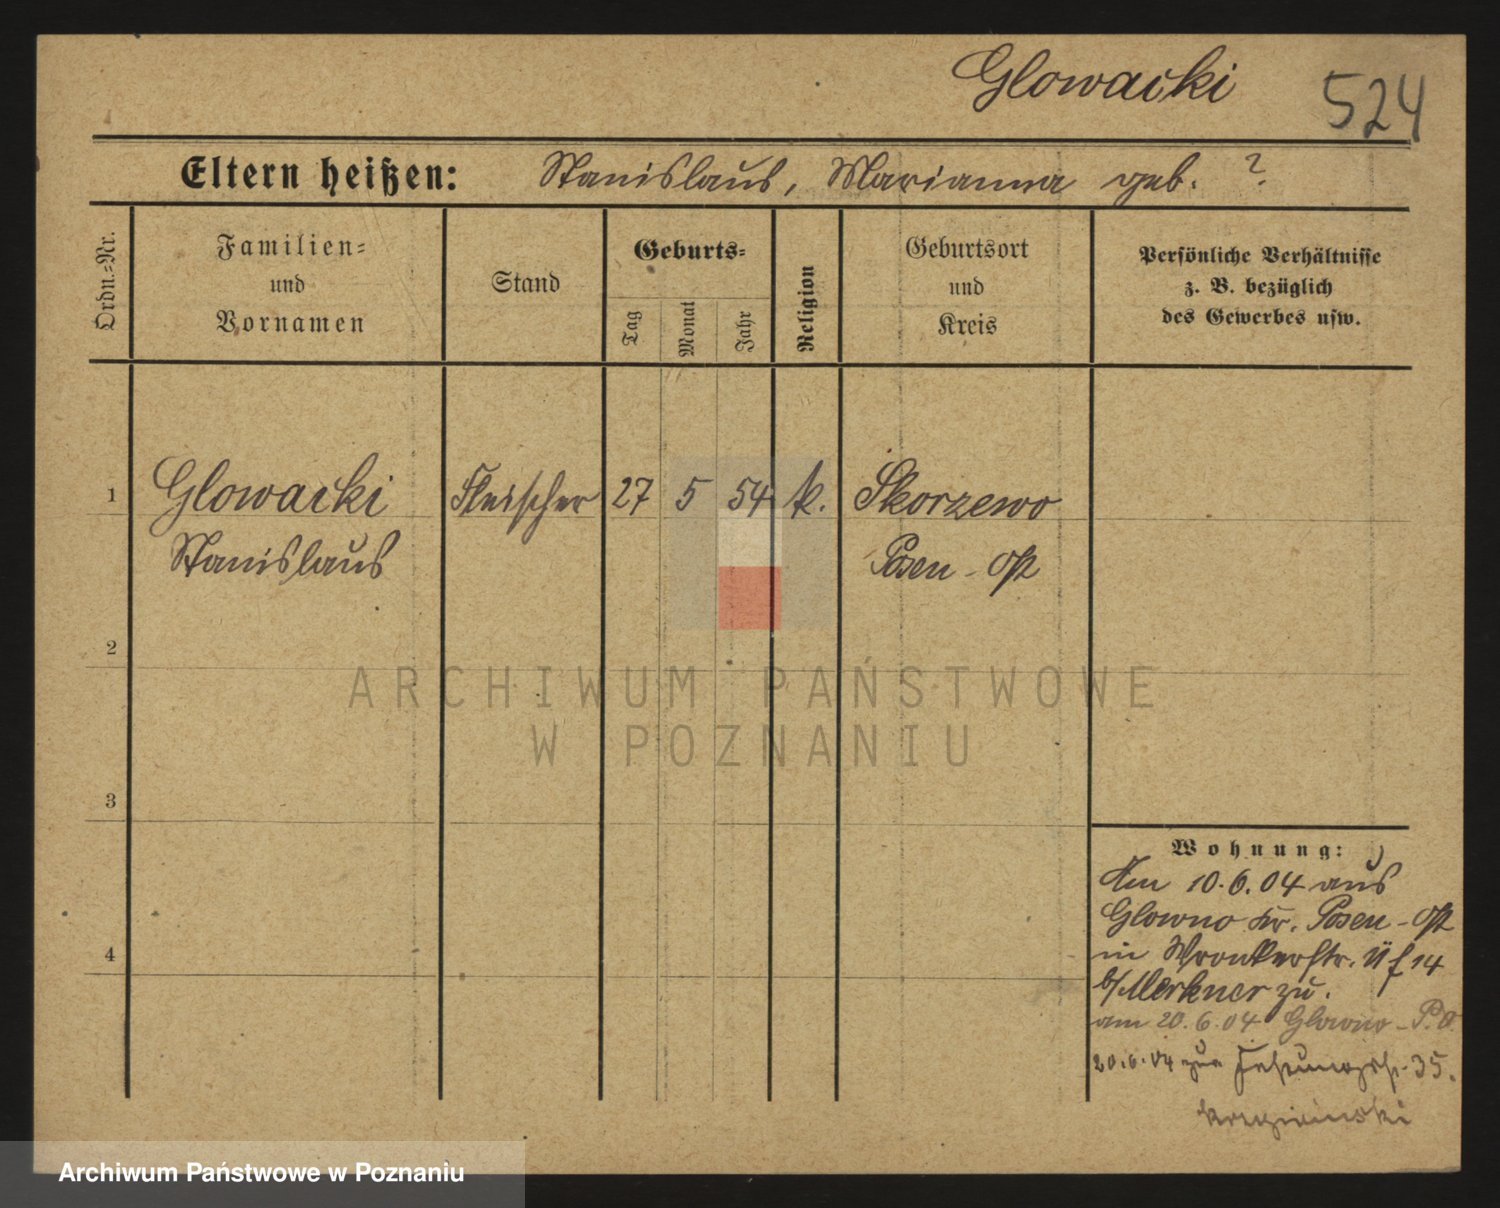 Glowacki 524
Eltern heißen: Stanislaus, Marianna geb. ?
Ordn.-Nr.
Familien-
und
Vornamen
Stand
Geburts-
Tag
Monat
Jahr
Religion
Geburtsort
und
Kreis
Persönliche Verhältnisse
z. B. bezüglich
des Gewerbes usw.
1 Glowacki Fleischer 27 5 54 k. Skorzewo
Stanislaus Posen - Ost
2
ARCHIWUM PAŃSTWOWE
W POZNANIU
3
Wohnung:
Am 10.6.04 aus
Glowno Kr. Posen - Ost
in Wronkerstr. 14
b/ Merkner zu.
4
am 20.6.04 Glowno - P. O.
20.6.04 zur 35.
Archiwum Państwowe w Poznaniu